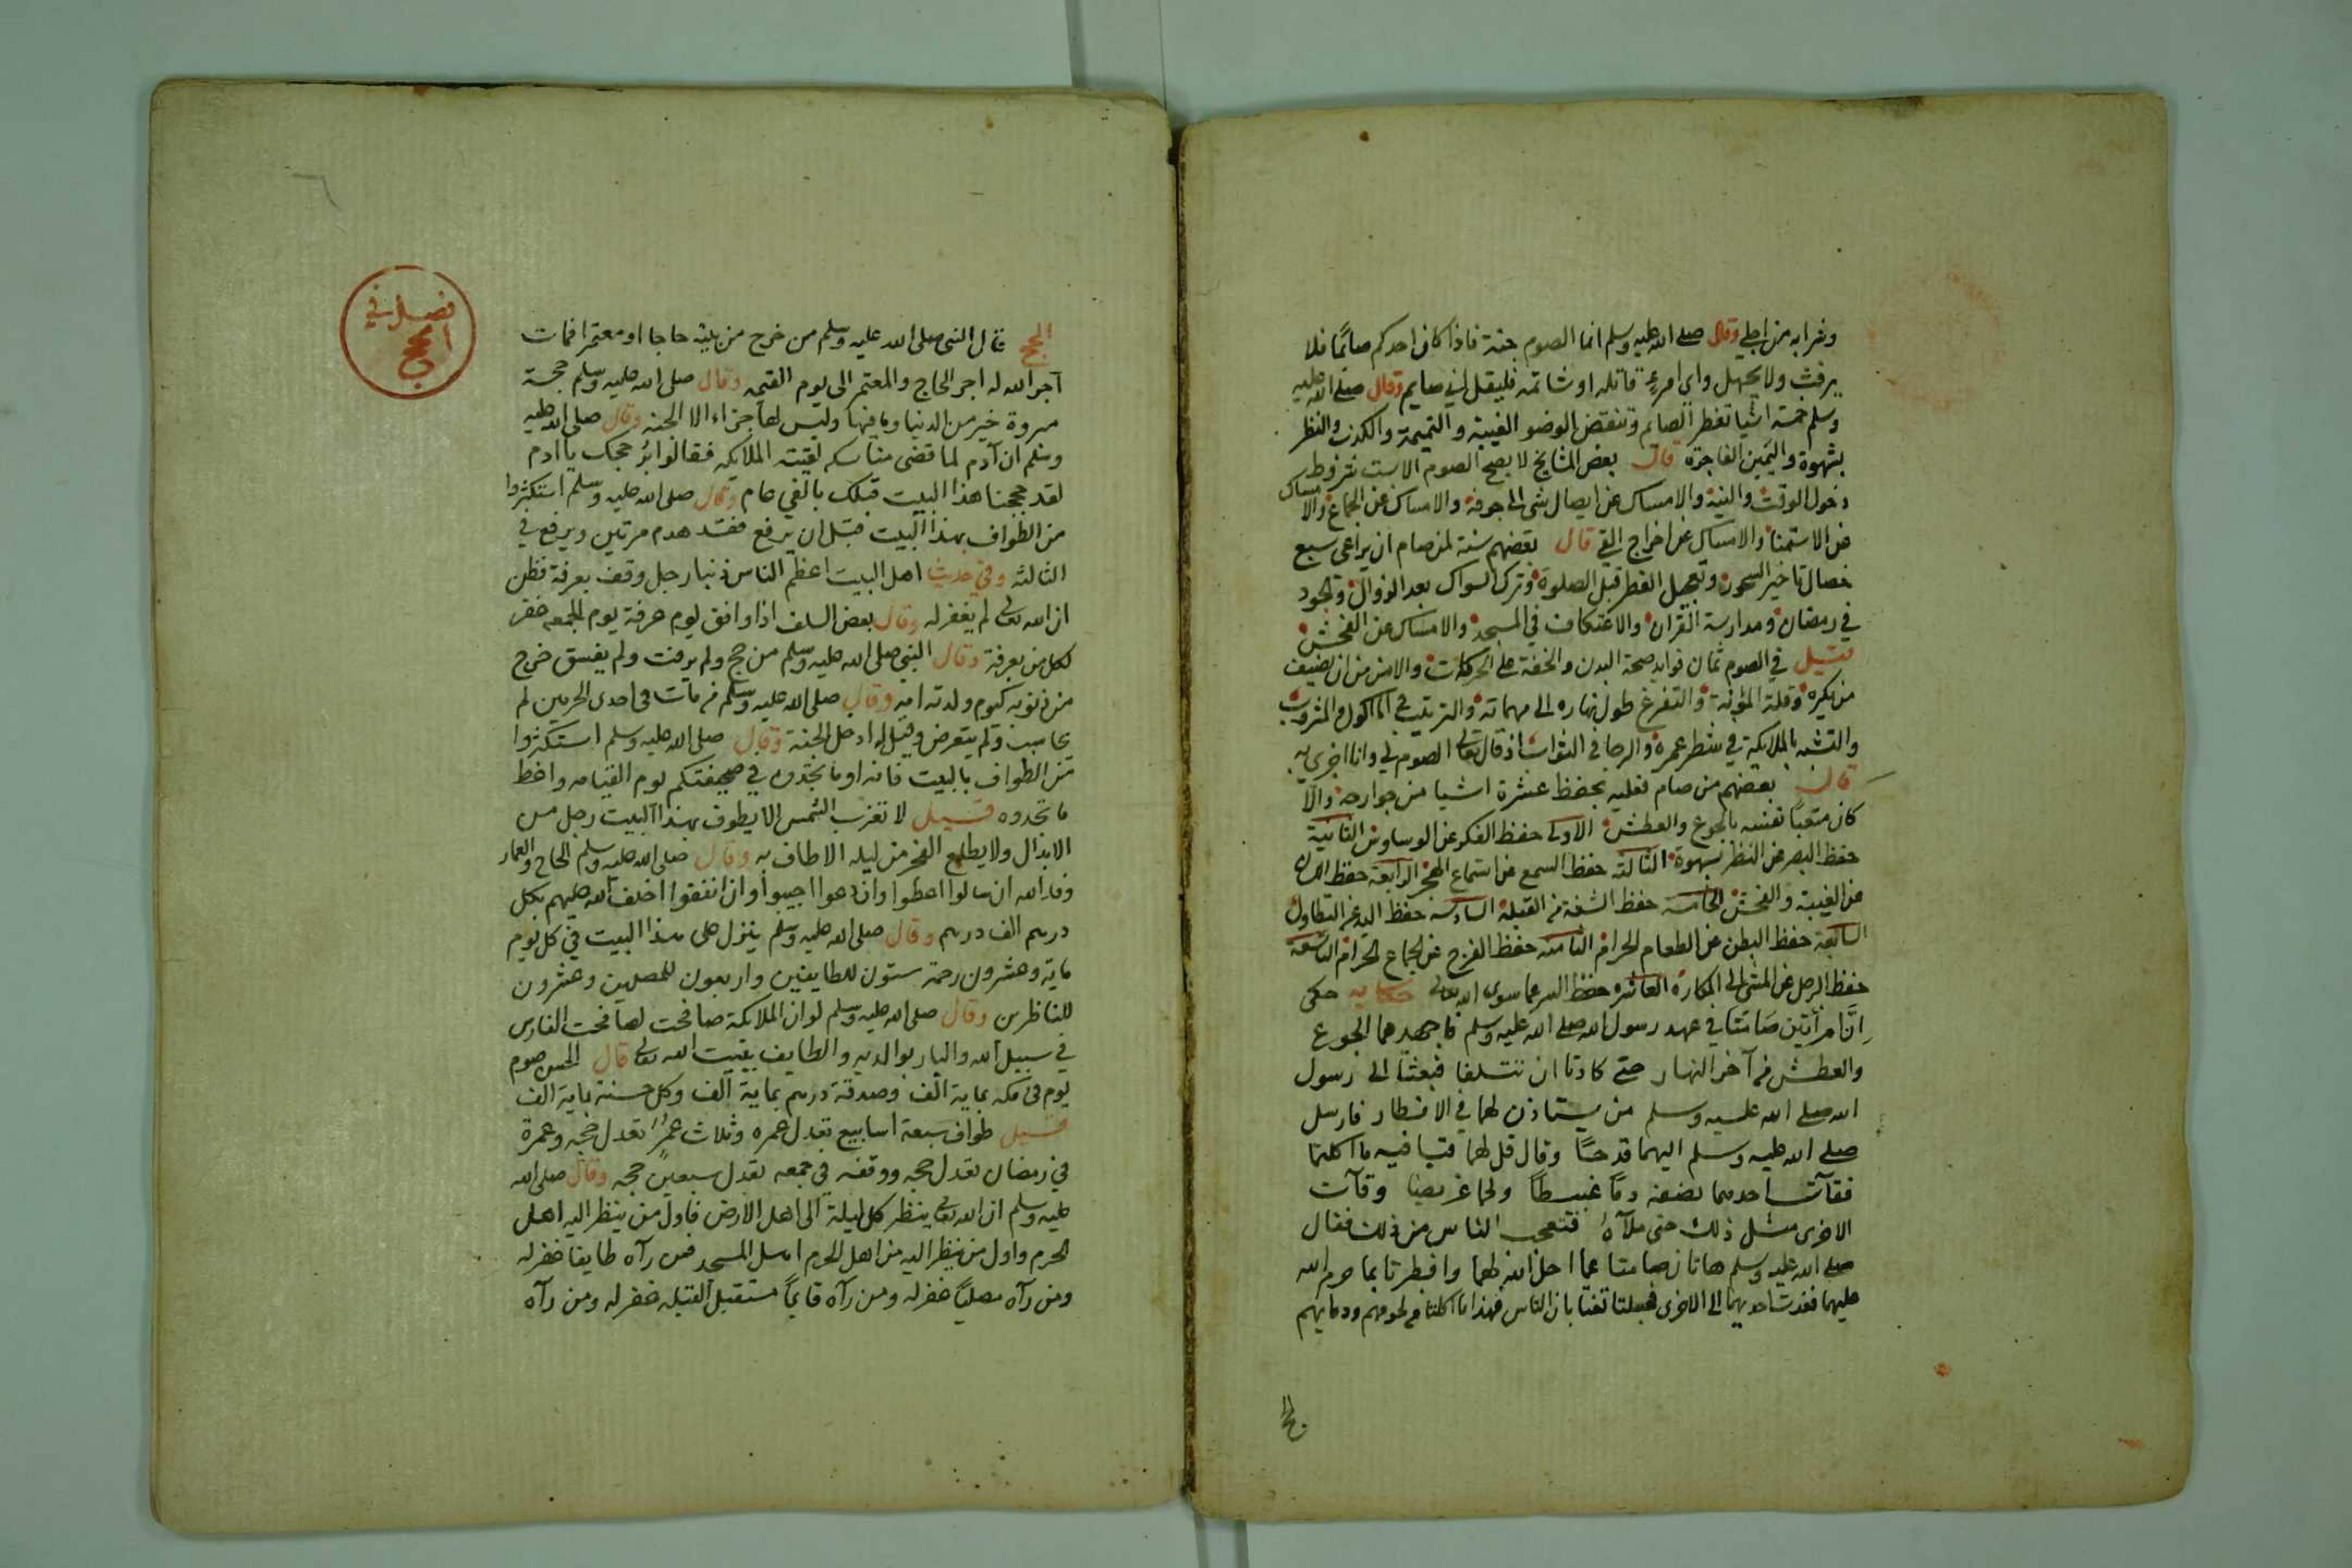 وشرابه من اجلي وقال صلى الله عليه وسلم انما الصوم جنة فاذا كان احدكم صائما فلا
يرفث ولا يجهل واي امرء قاتله او شاتمه فليقل اني صايم وقال صلى الله عليه
وسلم خمسة اشيا تفطر الصائم وتنقض الوضو الغيبة والنميمة والكذب والنظر
بشهوة واليمين الفاجرة قال بعض المشايخ لا يصح الصوم الا بست شروط
دخول الوقت والنية والامساك عن ايصال شي الى جوفه والامساك عن الجماع والامساك
عن الاستمنا والامساك عن اخراج القي قال بعضهم سنة لمن صام ان يراعى سبع
خصال تاخير السحور وتعجيل الفطر قبل الصلوة وترك السواك بعد الزوال والجود
في رمضان ومدارسة القران والاعتكاف في المسجد والامساك عن الفحش
قيل في الصوم ثمان فوايد صحة البدن والخفة على الحركات والامن من ان يضيف
من يكره وقلة المؤنة والتفرغ طول نهاره الى مهماته والترتيب في الماكول والمشروب
والتشبه بالملايكة في شطر عمره والرجا في الثواب اذ قال تعالى الصوم لي وانا اجزى به
قال بعضهم من صام فعليه بحفظ عشرة اشيا من جوارحه والا
كان متعبا نفسه بالجوع والعطش الاولى حفظ الفكر عن الوساوس الثانية
حفظ البصر عن النظر بشهوة الثالثة حفظ السمع عن استماع الهجر الرابعة حفظ اللسان
عن الغيبة والفحش الخامسة حفظ الشفة من القبلة السادسة حفظ اليد عن التطاول
السابعة حفظ البطن عن الطعام الحرام الثامنة حفظ الفرج عن الجماع الحرام التاسعة
حفظ الرجل عن المشى الى المكاره العاشره حفظ السر عما سوى الله تعالى حكاية حكى
ان امرأتين صامتا في عهد رسول الله صلى الله عليه وسلم فاجهدهما الجوع
والعطش من آخر النهار حتى كادتا ان تتلفا فبعثتا الى رسول
الله صلى الله عليه وسلم من يستاذن لهما في الافطار فارسل
صلى الله عليه وسلم اليهما قدحا وقال قل لهما قيا فيه ما اكلتما
فقآت احديهما نصفه دما عبيطا ولحما غريضا وقآت
الاخرى مثل ذلك حتى ملآه فتعجب الناس من ذلك فقال
صلى الله عليه وسلم هاتان صامتا عما احل الله لهما وافطرتا بما حرم الله
عليهما فقعدت احديهما الى الاخرى فجعلتا تغتابان الناس فهذا ما اكلتا من لحومهم ودمايهم
الحج
فصل في
الحج
الحج قال النبي صلى الله عليه وسلم من خرج من بيته حاجا او معتمرا فمات
آجر الله له اجر الحاج والمعتمر الى يوم القيمه وقال صلى الله عليه وسلم حجة
مبروة خير من الدنيا وما فيها وليس لها جزاء الا الجنة وقال صلى الله عليه
وسلم ان آدم لما قضى مناسكه لقيته الملايكه فقالوا بُر حجك يا ادم
لقد حججنا هذا البيت قبلك بالفي عام وقال صلى الله عليه وسلم استكثروا
من الطواف بهذا البيت قبل ان يرفع فقد هدم مرتين ويرفع في
الثالثه وفي حديث اهل البيت اعظم الناس ذنبا رجل وقف بعرفة فظن
ان الله تعالى لم يغفر له وقال بعض السلف اذا وافق يوم عرفة يوم الجمعه غفر
لكل من بعرفة وقال النبي صلى الله عليه وسلم من حج ولم يرفث ولم يفسق خرج
من ذنوبه كيوم ولدته امه وقال صلى الله عليه وسلم من مات في احدى الحرمين لم
يحاسب ولم يتعرض وقيل له ادخل الجنة وقال صلى الله عليه وسلم استكثروا
من الطواف بالبيت فانه اوما تجدوه في صحيفتكم يوم القيامه واغبط
ما تجدوه قيل لا تغرب الشمس الا يطوف بهذا البيت رجل من
الابدال ولا يطلع الفجر من ليله الا طاف به وقال صلى الله عليه وسلم الحاج والعمار
وفد الله ان سالوا اعطوا وان دعوا اجيبوا وان انفقوا اخلف الله عليهم بكل
درهم الف درهم وقال صلى الله عليه وسلم ينزل على هذا البيت في كل يوم
ماية وعشرون رحمة ستون للطايفين واربعون للمصلين وعشرون
للناظرين وقال صلى الله عليه وسلم لو ان الملايكة صافحت لصافحت الغازى
في سبيل الله والبار بوالديه والطايف ببيت الله تعالى قال الحسن صوم
يوم في مكه بماية الف وصدقة درهم بماية الف وكل حسنة بماية الف
قيل طواف سبعة اسابيع تعدل عمره وثلاث عمر تعدل حجه وعمرة
في رمضان تعدل حجه ووقفه في جمعه تعدل سبعين حجه وقال صلى الله
عليه وسلم ان الله تعالى ينظر كل ليلة الى اهل الارض فاول من ينظر اليه اهل
الحرم واول من ينظر اليه من اهل الحرم اهل المسجد فمن رآه طايفا غفر له
ومن رآه مصليا غفر له ومن رآه قايما مستقبل القبله غفر له ومن رآه